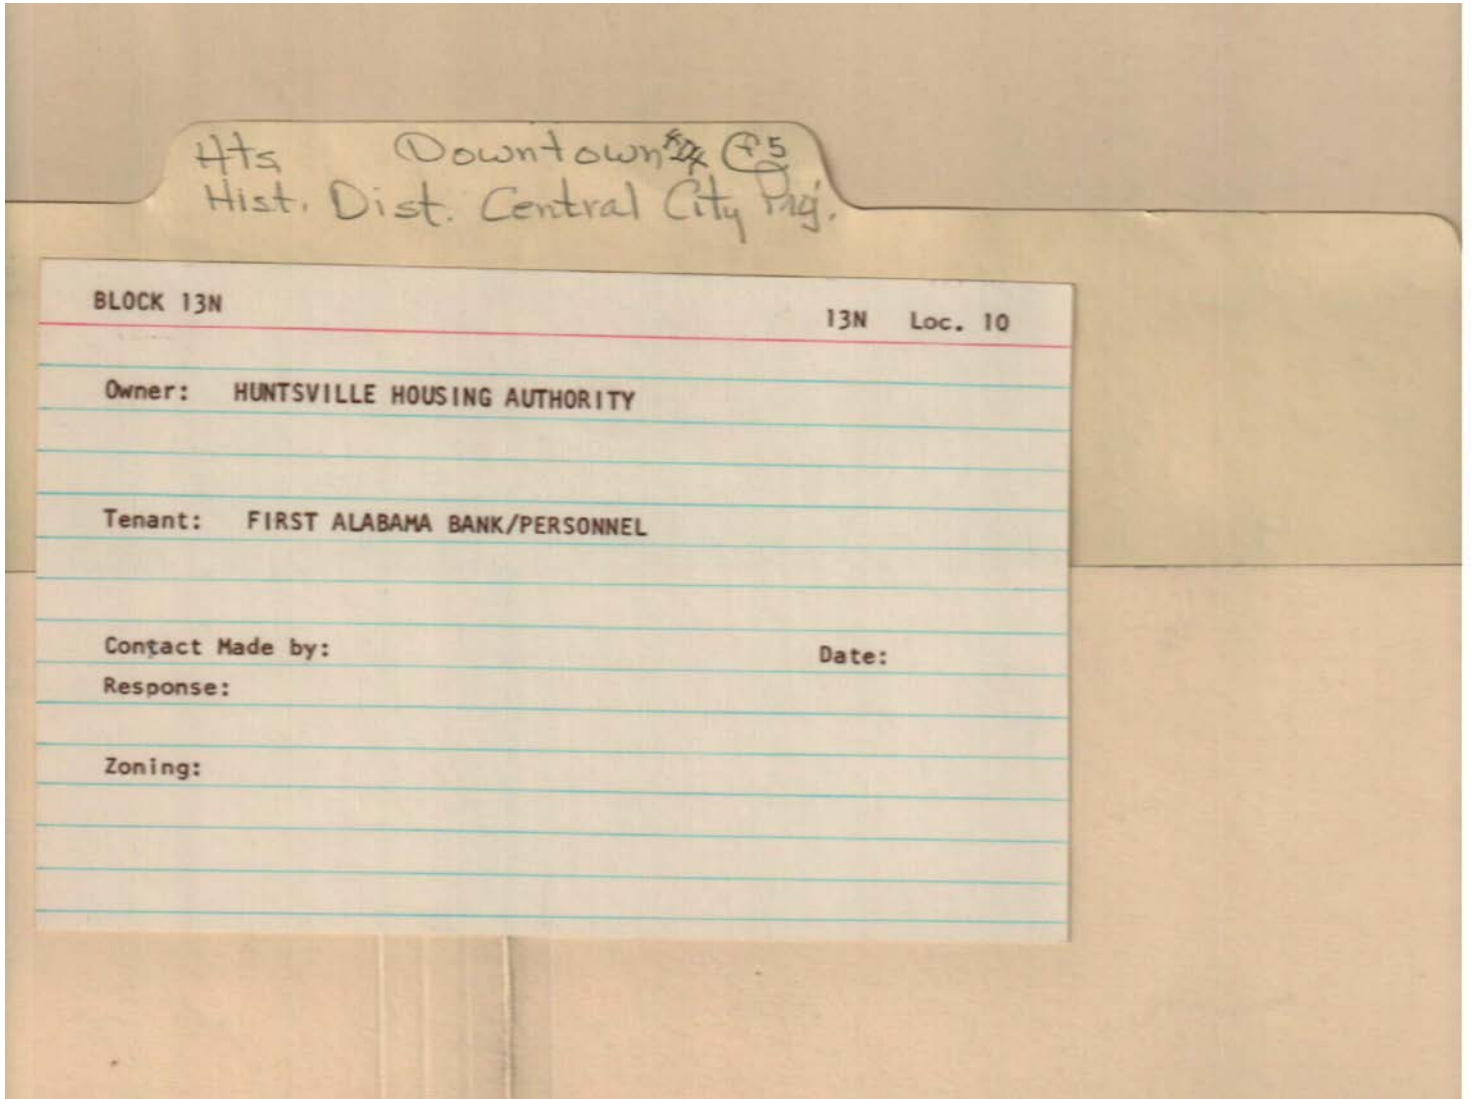 Hts Downtown
Hist. Dist. Central City Proj.
BLOCK 13N
13N Loc. 10
Owner: HUNTSVILLE HOUSING AUTHORITY
Tenant: FIRST ALABAMA BANK/PERSONNEL
Contact Made by: Date:
Response:
Zoning: